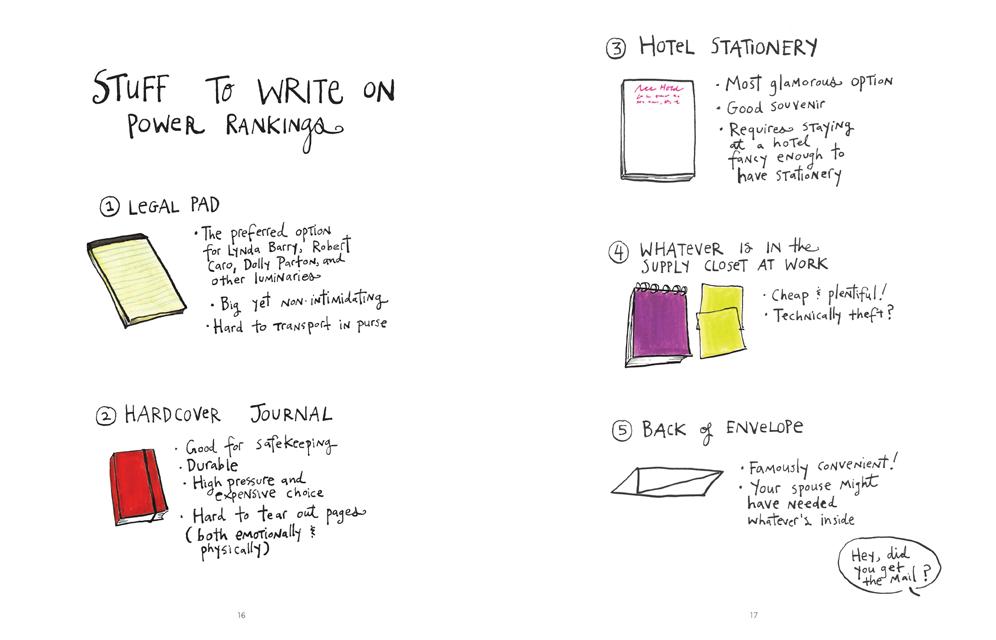 STUFF TO WRITE ON
POWER RANKINGS
1 LEGAL PAD
• The preferred option
for Lynda Barry, Robert
Caro, Dolly Parton, and
other luminaries
• Big yet non-intimidating
• Hard to transport in purse
2 HARDCOVER JOURNAL
• Good for safekeeping
• Durable
• High pressure and
expensive choice
• Hard to tear out pages
(both emotionally &
physically)
16
3 HOTEL STATIONERY
• Most glamorous option
• Good souvenir
• Requires staying
at a hotel
fancy enough to
have stationery
4 WHATEVER IS IN the
SUPPLY CLOSET AT WORK
• Cheap & plentiful!
• Technically theft?
5 BACK of ENVELOPE
• Famously convenient!
• Your spouse might
have needed
whatever's inside
Hey, did
you get
the mail?
17